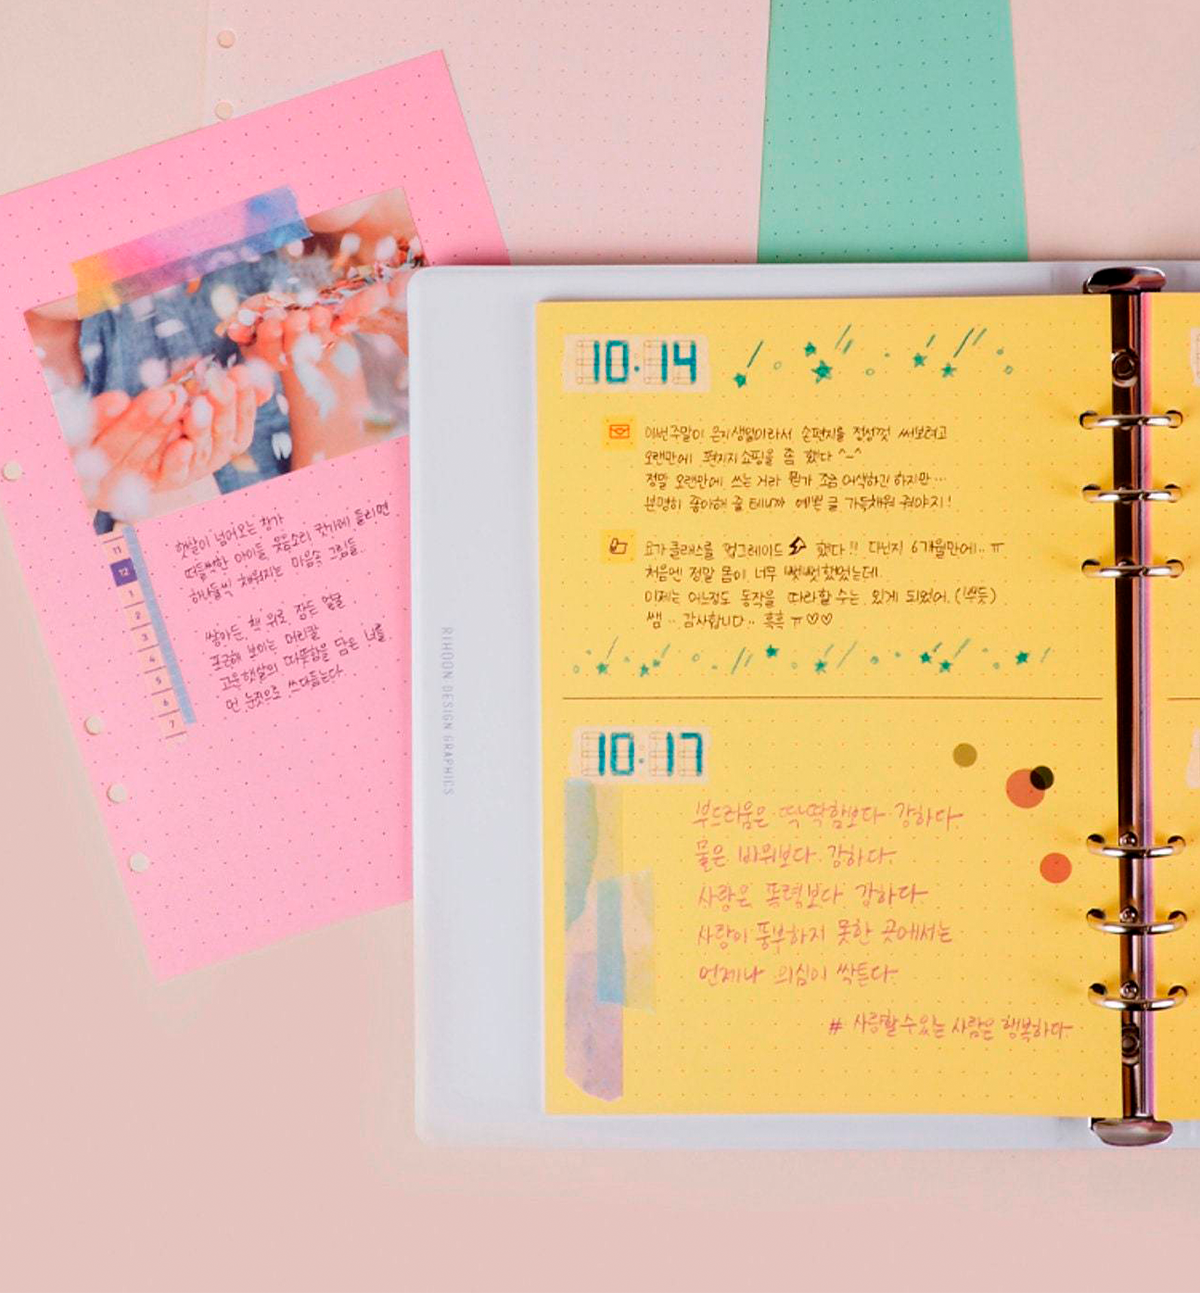 햇살이 넘어오는 창가
떠들썩한 아이들 웃음소리 귓가에 들리면
하나둘씩 채워지는 마음속 그림들..
쌓아둔 책 위로 잠든 얼굴
포근해 보이는 머리칼
고운 햇살의 따뜻함을 닮은 너를
먼 눈짓으로 쓰다듬는다
11
12
1
2
3
4
5
6
7
RIHOON DESIGN GRAPHICS
10·14
이번주말이 은지생일이라서 손편지를 정성껏 써보려고
오랜만에 편지지쇼핑을 좀 했다 ^-^
정말 오랜만에 쓰는 거라 뭔가 조금 어색하긴 하지만…
분명히 좋아해 줄 테니까 예쁜 글 가득채워 줘야지!
요가클래스를 업그레이드 했다!! 다닌지 6개월만에.. ㅠ
처음엔 정말 몸이 너무 뻣뻣했었는데.
이제는 어느정도 동작을 따라할 수는 있게 되었어.(뿌듯)
쌤.. 감사합니다.. 흑흑 ㅠ♡♡
10·17
부드러움은 딱딱함보다 강하다.
물은 바위보다 강하다.
사랑은 폭력보다 강하다.
사랑이 풍부하지 못한 곳에서는
언제나 의심이 싹튼다.
# 사랑할수있는 사람은 행복하다.